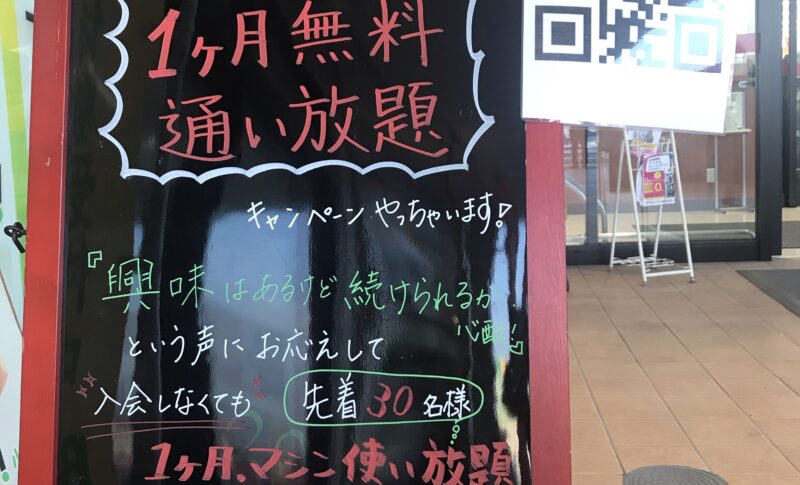 1ヶ月無料
通い放題
キャンペーンやっちゃいます!
『興味はあるけど続けられるか
心配』
という声にお応えして
入会しなくても
先着30名様
1ヶ月、マシン使い放題